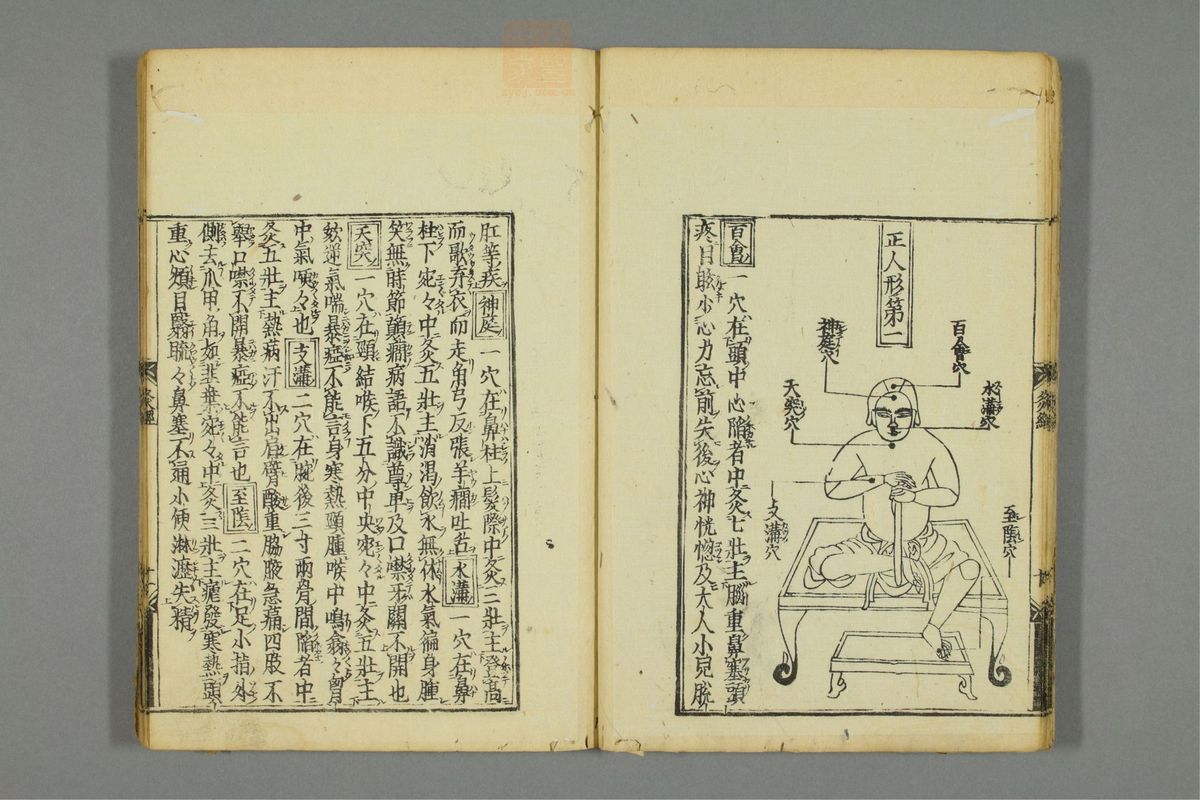 正人形第二
百會穴
水溝穴
神庭穴
天突穴
支溝穴
至陰穴
百會一穴在頭中心陷者中灸七壯主腦重鼻塞頭
疼目眩少心力忘前失後心神恍惚及大人小兒脫
肛等疾神庭一穴在鼻柱上髮際中灸三壯主登高
而歌弃衣而走角弓反張羊癎吐舌水溝一穴在鼻
柱下宛々中灸五壯主消渴飲水無休水氣徧身腫
笑無時節顛癎病語不識尊卑及口噤牙關不開也
天突一穴在頸結喉下五分中央宛々中灸五壯主
欬逆氣喘暴瘂不能言身寒熱頸腫喉中鳴翕々胷
中氣哽々也支溝二穴在腕後三寸兩骨間陷者中
灸五壯主熱病汗不出肩臂酸重脇腋急痛四肢不
舉口噤不開暴瘂不能言也至陰二穴在足小指外
側去爪甲角如韭葉宛々中灸三壯主瘧發寒熱頭
重心煩目翳䀮々鼻塞不通小便淋瀝失精
灸經